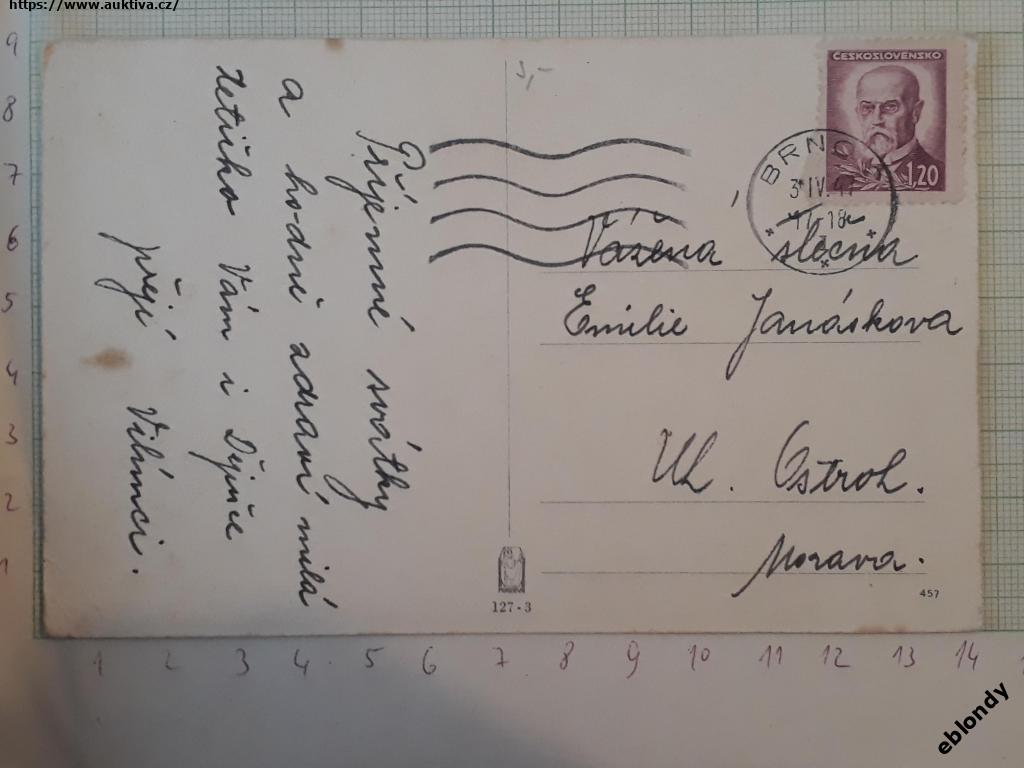 https://www.auktiva.cz/
Příjemné svátky
a hodně zdraví milá
tetičko Vám i
přejí Vilímci.
5,-
ČESKOSLOVENSKO
1,20
BRNO
3.IV.47
17-18
Vážená slečna
Emilie Janáskova
Uh. Ostroh.
Morava.
127-3
457
9
8
7
6
5
4
3
2
1
1 2 3 4 5 6 7 8 9 10 11 12 13 14
eblondy